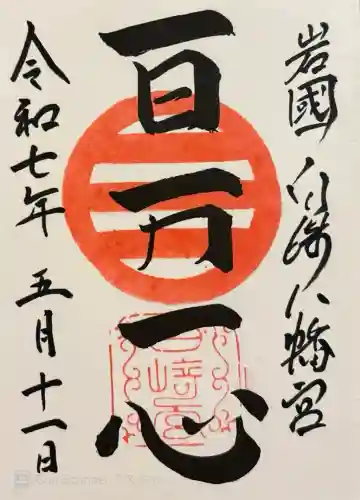 岩國 白崎八幡宮
百万一心
令和七年 五月十一日
白崎宮